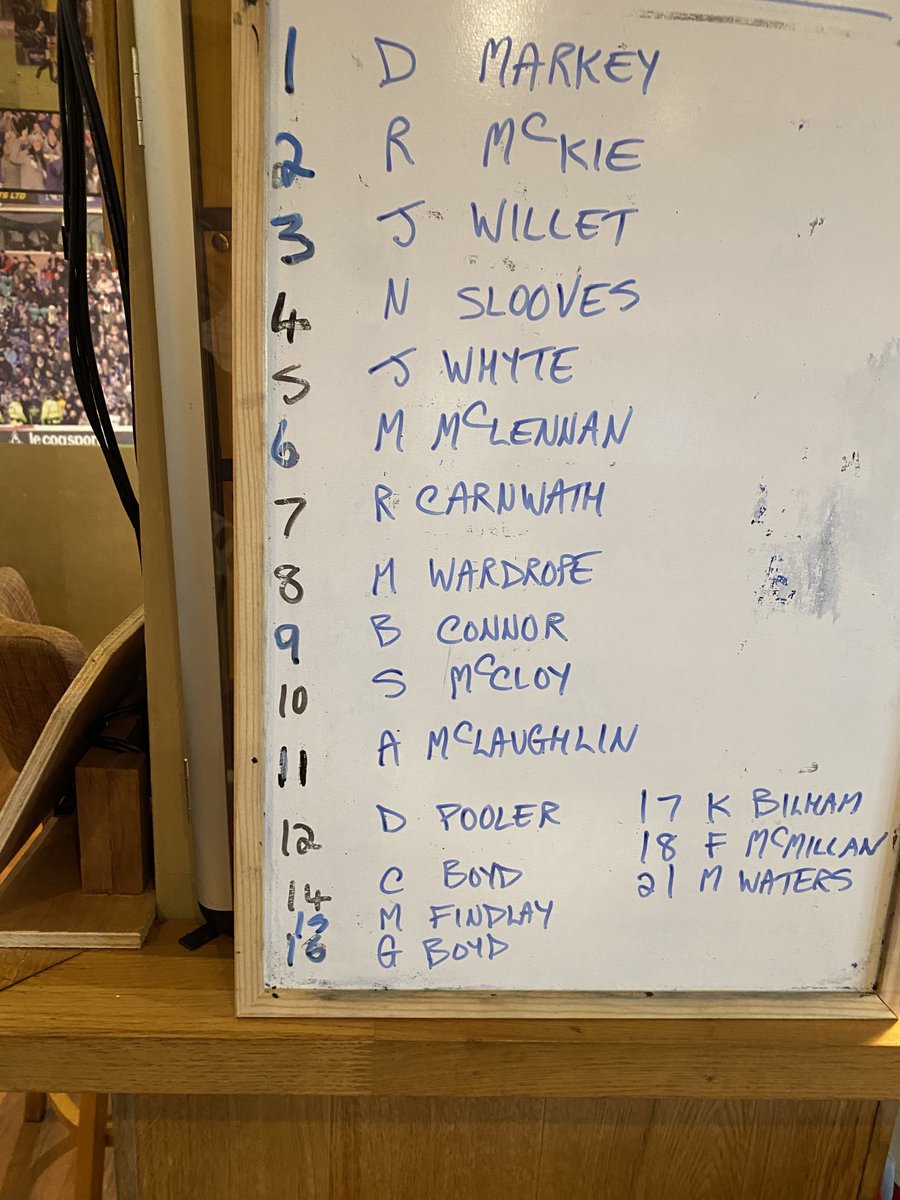 1 D MARKEY
2 R McKIE
3 J WILLET
4 N SLOOVES
5 J WHYTE
6 M McLENNAN
7 R CARNWATH
8 M WARDROPE
9 B CONNOR
10 S McCLOY
11 A McLAUGHLIN
12 D POOLER
14 C BOYD
15 M FINDLAY
16 G BOYD
17 K BILHAM
18 F McMILLAN
21 M WATERS
le coq spor